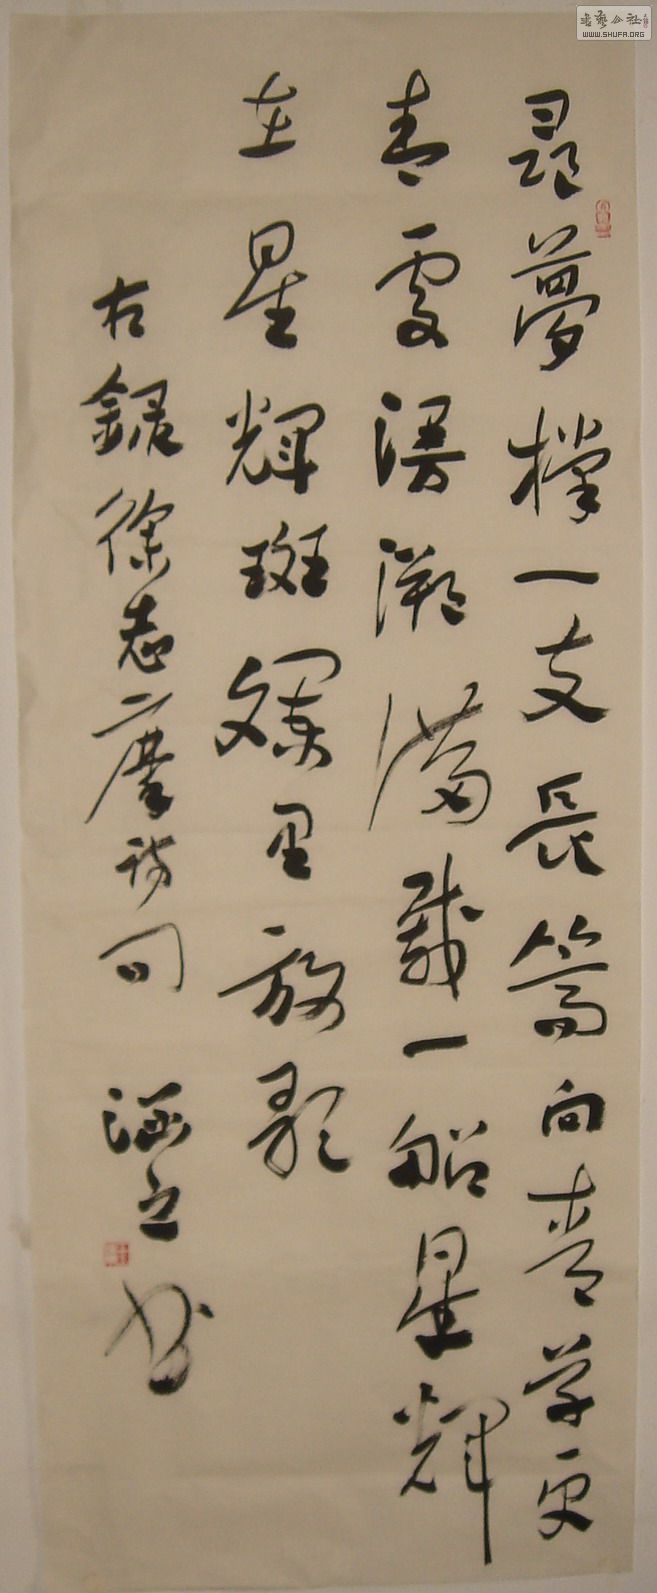 尋夢撑一支長篙向青草更
青處漫溯滿載一船星輝
在星輝斑斕里放歌
右録徐志摩詩句
涵之书
書藝公社
WWW.SHUFA.ORG